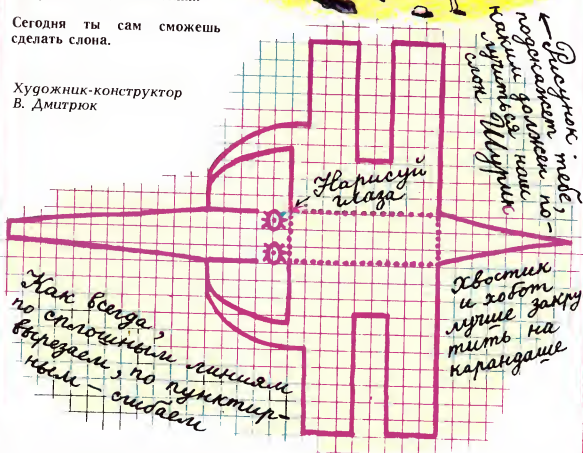 Сегодня ты сам сможешь
сделать слона.
Художник-конструктор
В. Дмитрюк
← Рисунок
подскажет тебе,
каким должен по-
лучиться наш
слон Шурик
← Нарисуй
глаза
Как всегда,
по сплошным линиям
вырезаем, по пунктир-
ным – сгибаем
Хвостик
и хобот
лучше закру
тить на
карандаше